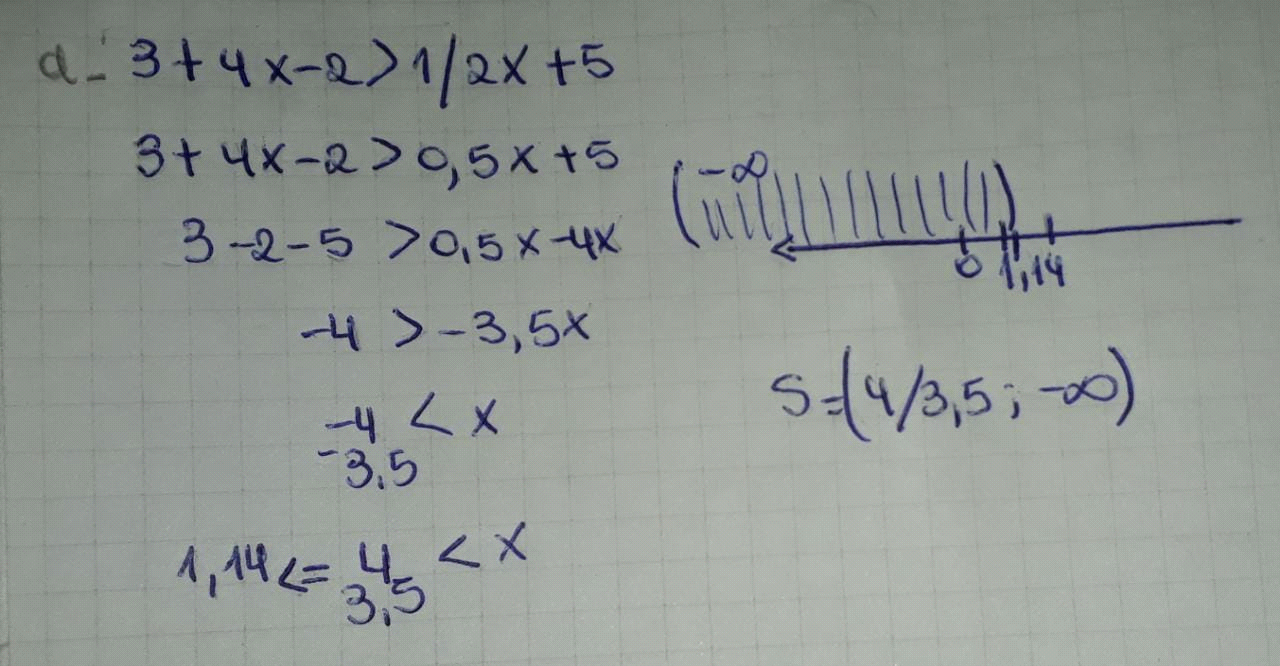 d- 3+4x-2>1/2x+5
3+4x-2>0,5x+5
3-2-5>0,5x-4x
-4>-3,5x
-4<x
-3.5
1,14<= 4<x
3,5
(-∞ )
0 1,14
S=(4/3,5; -∞)